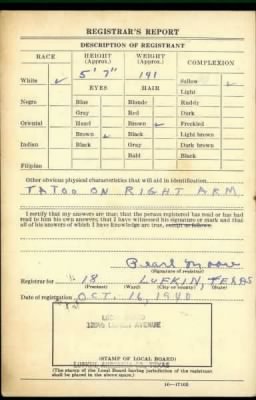 REGISTRAR'S REPORT
DESCRIPTION OF REGISTRANT
RACE HEIGHT (Approx.) WEIGHT (Approx.) COMPLEXION
5' 7" 141
White ✓ Sallow ✓
EYES HAIR Light
Negro Blue Blonde Ruddy
Gray Red Dark
Oriental Hazel Brown ✓ Freckled
Brown ✓ Black Light brown
Indian Black Gray Dark brown
Bald Black
Filipino
Other obvious physical characteristics that will aid in identification
TATOO ON RIGHT ARM
I certify that my answers are true; that the person registered has read or has had
read to him his own answers; that I have witnessed his signature or mark and that
all of his answers of which I have knowledge are true, except as follows:
Pearl Moore
(Signature of registrar)
Registrar for 18 LUFKIN, TEXAS
(Precinct) (Ward) (City or county) (State)
Date of registration OCT. 16, 1940
LOCAL BOARD
AVENUE
LUFKIN, TEXAS
(STAMP OF LOCAL BOARD)
(The stamp of the Local Board having jurisdiction of the registrant
shall be placed in the above space.)